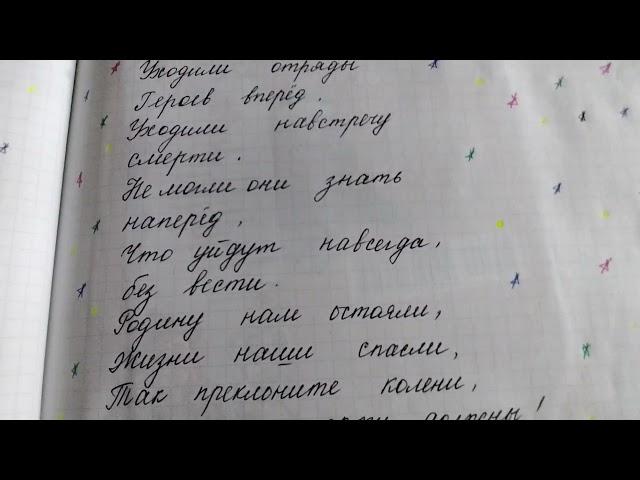 Уходили отряды
Героев вперёд.
Уходили навстречу
смерти.
Не могли они знать
наперёд,
Что уйдут навсегда,
без вести.
Родину нам отстояли,
Жизни наши спасли,
Так преклоните колени,
должны!